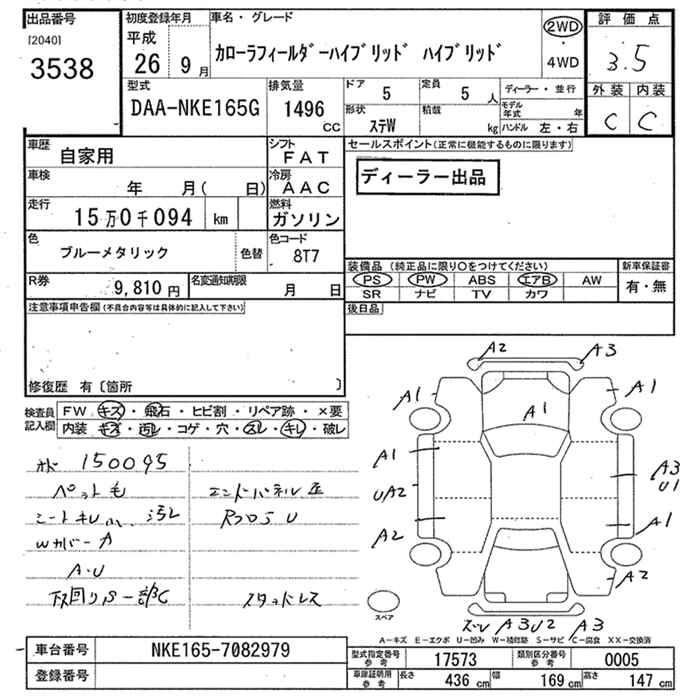 出品番号
[2040]
3538
初度登録年月
平成
26年 9月
車名・グレード
カローラフィールダーハイブリッド ハイブリッド
2WD
・
4WD
評価点
3.5
外装 内装
C C
型式
DAA-NKE165G
排気量
1496
CC
ドア
5
定員
5人
形状
ステW
積載
kg
ディーラー・並行
モデル年式 年
ハンドル 左・右
車歴
自家用
シフト
FAT
車検
年 月( 日)
冷房
AAC
走行
15万0千094 km
燃料
ガソリン
色
ブルーメタリック
色替
色コード
8T7
R券
9,810円
名変通知期限
月 日
セールスポイント(正常に機能するものに限ります)
ディーラー出品
装備品 (純正品に限り○をつけてください)
PS PW ABS エアB AW
SR ナビ TV カワ
新車保証書
有・無
後日品
注意事項申告欄(不具合内容等は具体的に記入して下さい)
修復歴 有〔箇所 〕
検査員記入欄
FW キズ・飛石・ヒビ割・リペア跡・×要
内装 キズ・汚レ・コゲ・穴・スレ・キレ・破レ
オド 150095
ペット毛
シートキレ 汚レ
Wカバー A
A・U
下回りS一部C
エンドパネル歪
Rフロア U
スタッドレス
A2 A3
A1 A1 A1
A1
UA2
A3
U1
A2 A1
A2
ズレ A3U2 A3
スペア
A-キズ E-エクボ U-凹み W-補修跡 S-サビ C-腐食 XX-交換済
車台番号
NKE165-7082979
登録番号
型式指定番号
参考
17573
類別区分番号
参考
0005
車庫証明用
参考
長さ
436 cm
幅
169 cm
高さ
147 cm